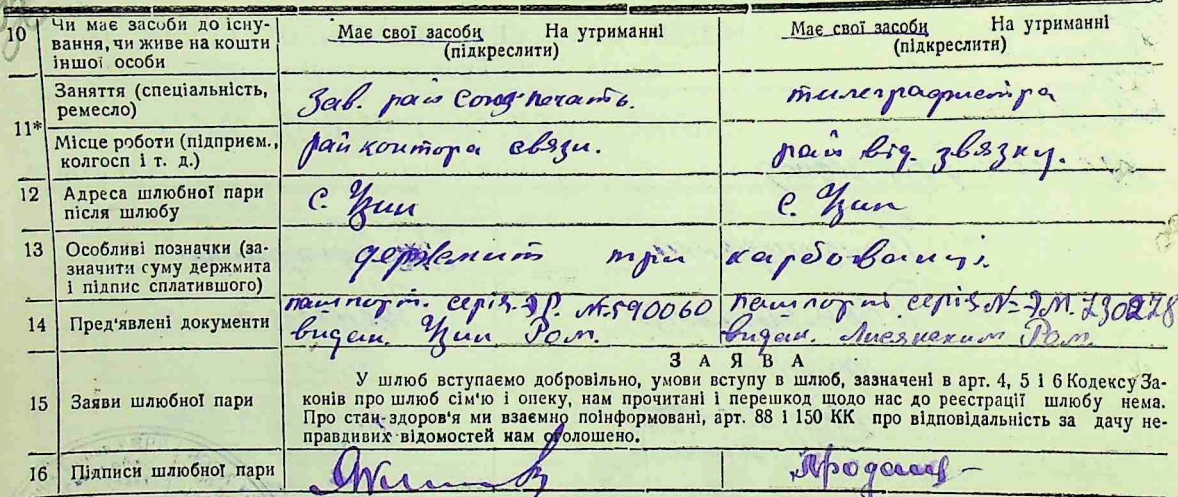 10 Чи має засоби до існу-
вання, чи живе на кошти
іншої особи
Має свої засоби На утриманні
(підкреслити)
Має свої засоби На утриманні
(підкреслити)
11* Заняття (спеціальність,
ремесло)
Зав. рай Союзпечать.
тилеграфистра
Місце роботи (підприєм.,
колгосп і т. д.)
рай контора связи.
рай від. звязку.
12 Адреса шлюбної пари
після шлюбу
С. Узин
С. Узин
13 Особливі позначки (за-
значити суму держмита
і підпис сплатившого)
держмит три карбованці.
14 Пред'явлені документи
пашпорт. серія ЭР. № 590060
видан. Узин Р.о.м.
пашпорт серія № ЭМ. 730278
видан. Лисянским Р.о.м.
15 Заяви шлюбної пари
ЗАЯВА
У шлюб вступаємо добровільно, умови вступу в шлюб, зазначені в арт. 4, 5 і 6 Кодексу За-
конів про шлюб сім'ю і опеку, нам прочитані і перешкод щодо нас до реєстрації шлюбу нема.
Про стан здоров'я ми взаємно поінформовані, арт. 88 і 150 КК про відповідальність за дачу не-
правдивих відомостей нам оголошено.
16 Підписи шлюбної пари